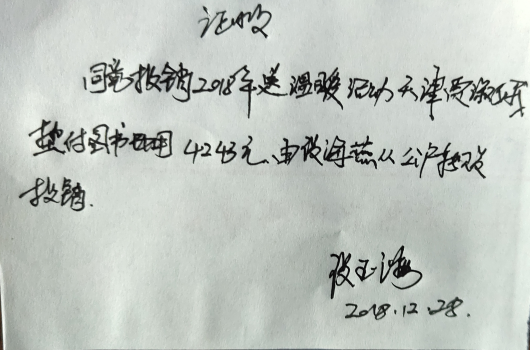 证明
同意报销2018年送温暖活动天津
垫付图书费用4243元,由段海燕从公户转
报销.
段玉
2018.12.28.